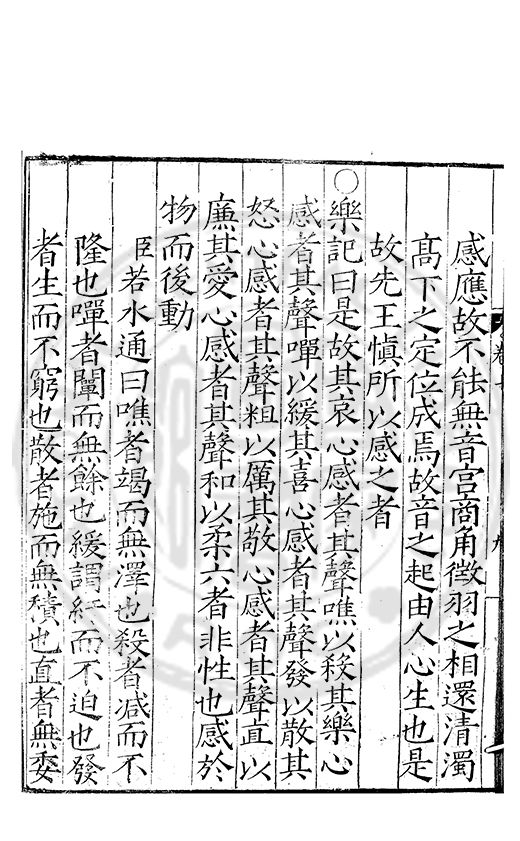 感應故不能無音宫商角徵羽之相還清濁
高下之定位成焉故音之起由人心生也是
故先王愼所以感之者
〇樂記曰是故其哀心感者其聲噍以殺其樂心
感者其聲嘽以緩其喜心感者其聲發以散其
怒心感者其聲粗以厲其敬心感者其聲直以
廉其愛心感者其聲和以柔六者非性也感於
物而後動
臣若水通曰噍者竭而無澤也殺者减而不
隆也嘽者闡而無餘也緩謂紆而不迫也發
者生而不窮也散者施而無積也直者無委